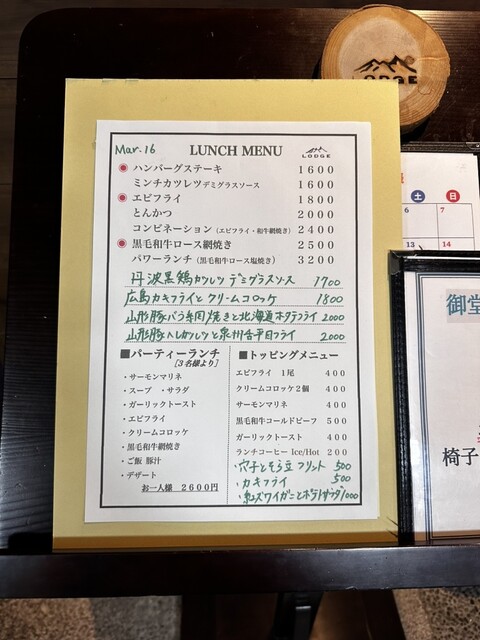 LODGE
Mar. 16
LUNCH MENU
LODGE
ハンバーグステーキ 1600
ミンチカツレツデミグラスソース 1600
エビフライ 1800
とんかつ 2000
コンビネーション (エビフライ・和牛網焼き) 2400
黒毛和牛ロース網焼き 2500
パワーランチ (黒毛和牛ロース塩焼き) 3200
丹波黒鶏カツレツ デミグラスソース 1700
広島カキフライとクリームコロッケ 1800
山形豚バラ網焼きと北海道ホタテフライ 2000
山形豚ヘレカツレツと泉州舌平目フライ 2000
■パーティーランチ
[3名様より]
・サーモンマリネ
・スープ ・サラダ
・ガーリックトースト
・エビフライ
・クリームコロッケ
・黒毛和牛網焼き
・ご飯 豚汁
・デザート
お一人様 2600円
■トッピングメニュー
エビフライ 1尾 400
クリームコロッケ2個 400
サーモンマリネ 400
黒毛和牛コールドビーフ 500
ガーリックトースト 400
ランチコーヒー Ice/Hot 200
・穴子とそら豆フリット 500
・カキフライ 500
・紅ズワイガニとポテトサラダ 1000
土 日
6 7
13 14
御堂
椅子